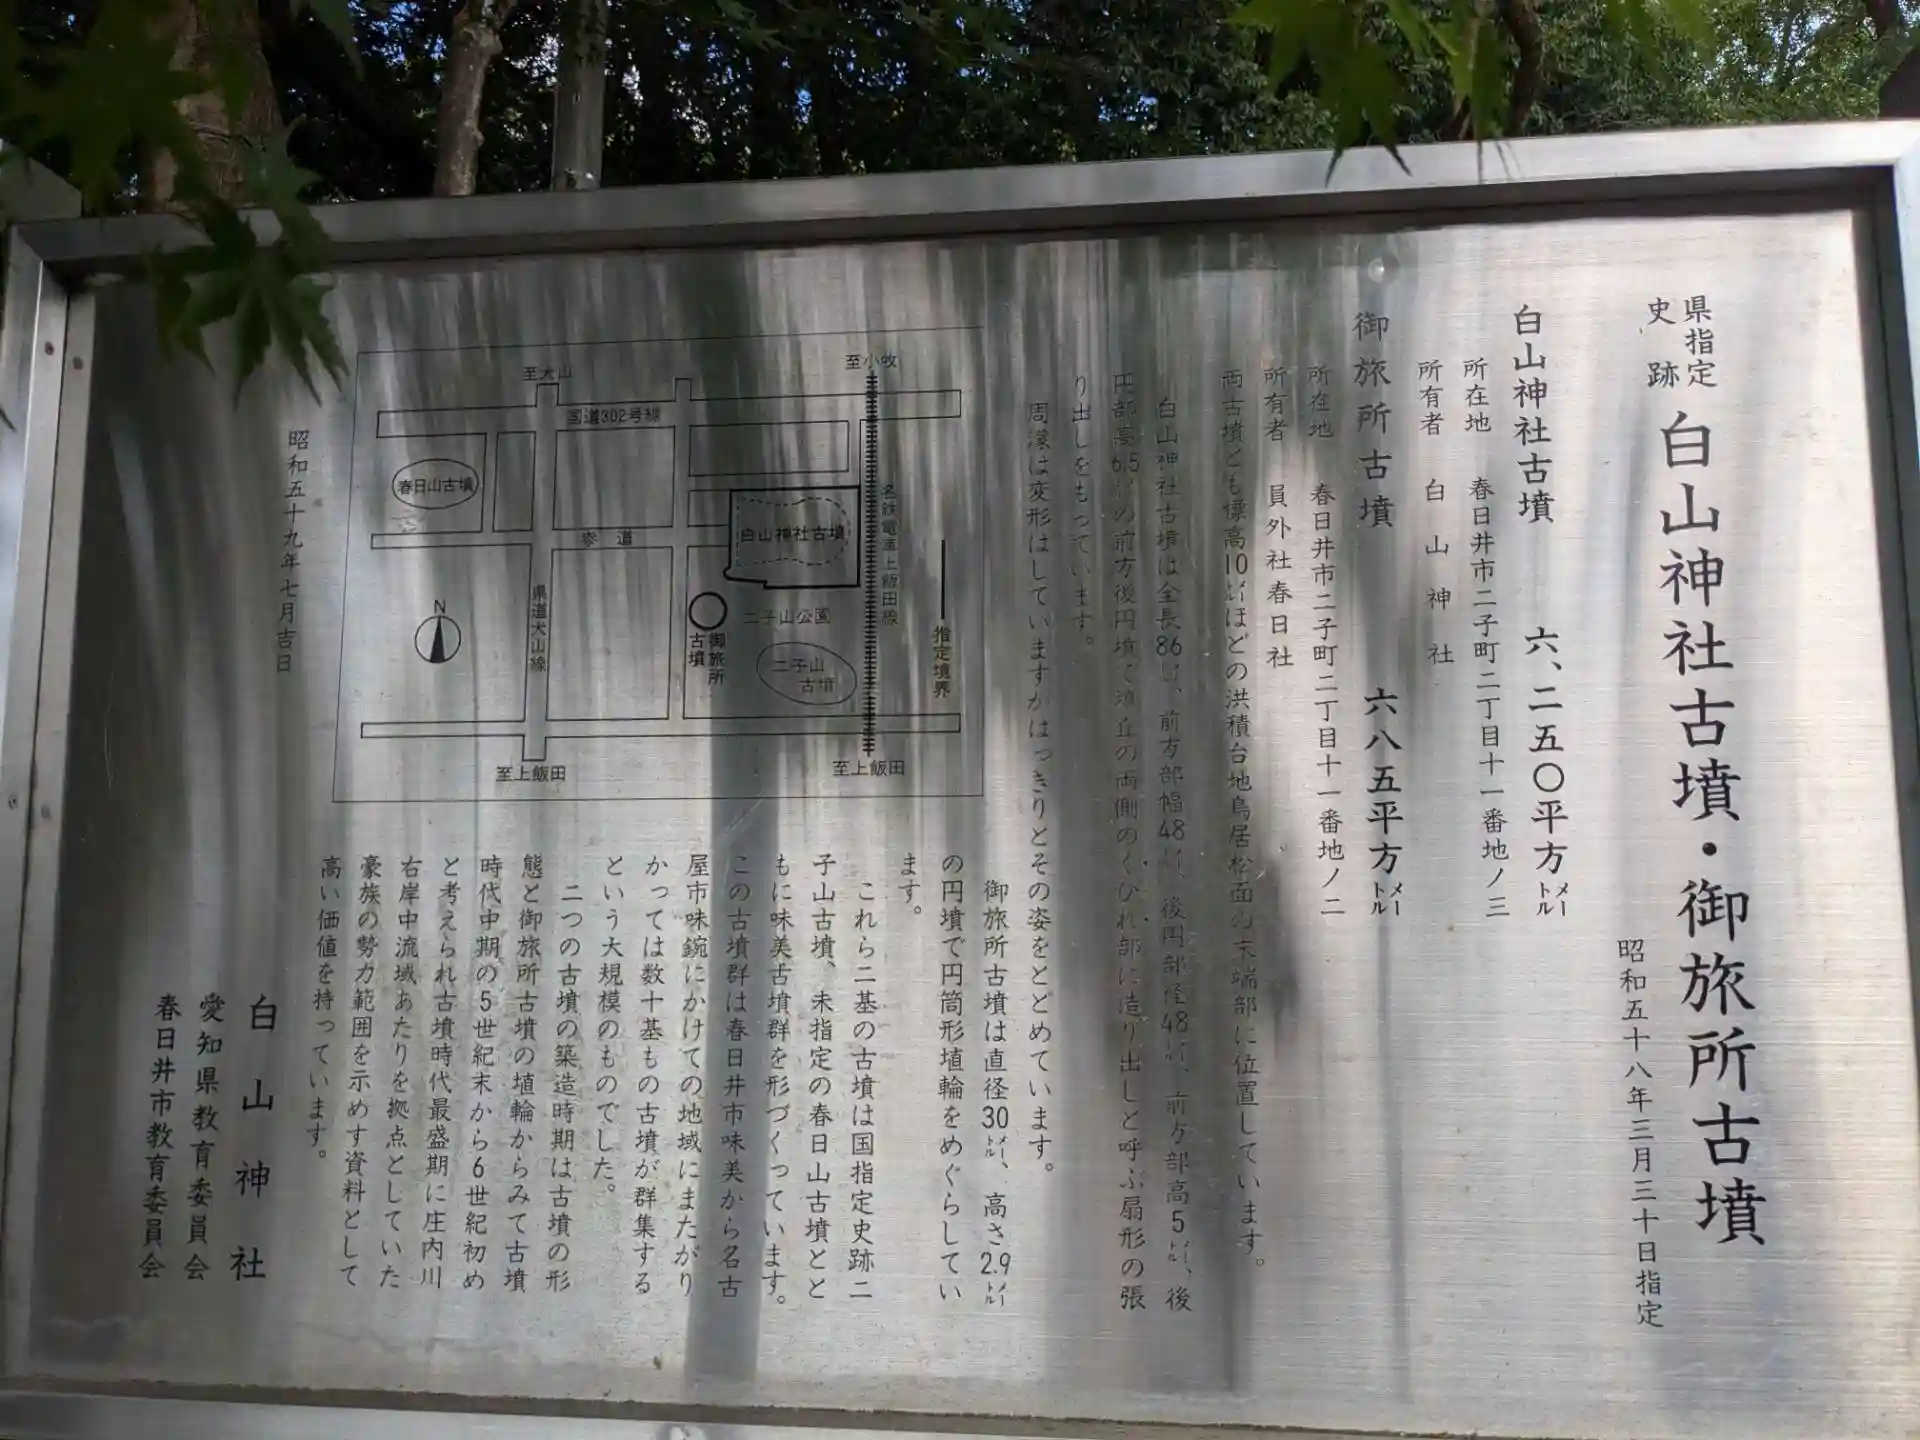 県指定
史跡
白山神社古墳・御旅所古墳
昭和五十八年三月三十日指定
白山神社古墳　六、二五〇平方メートル
所在地　春日井市二子町二丁目十一番地ノ三
所有者　白山神社
御旅所古墳　六八五平方メートル
所在地　春日井市二子町二丁目十一番地ノ二
所有者　員外社春日社
両古墳とも標高10メートルほどの洪積台地鳥居松面の末端部に位置しています。
白山神社古墳は全長86メートル、前方部幅48メートル、後円部径48メートル、前方部高5メートル、後
円部高6.5メートルの前方後円墳で墳丘の両側のくびれ部に造り出しと呼ぶ扇形の張
り出しをもっています。
周濠は変形はしていますがはっきりとその姿をとどめています。
御旅所古墳は直径30メートル、高さ2.9メートル
の円墳で円筒形埴輪をめぐらしてい
ます。
これら二基の古墳は国指定史跡二
子山古墳、未指定の春日山古墳とと
もに味美古墳群を形づくっています。
この古墳群は春日井市味美から名古
屋市味鋺にかけての地域にまたがり
かっては数十基もの古墳が群集する
という大規模のものでした。
二つの古墳の築造時期は古墳の形
態と御旅所古墳の埴輪からみて古墳
時代中期の5世紀末から6世紀初め
と考えられ古墳時代最盛期に庄内川
右岸中流域あたりを拠点としていた
豪族の勢力範囲を示めす資料として
高い価値を持っています。
至犬山
至小牧
国道302号線
春日山古墳
参道
白山神社古墳
名鉄電車上飯田線
指定境界
県道犬山線
N
御旅所
古墳
二子山公園
二子山
古墳
至上飯田
至上飯田
昭和五十九年七月吉日
白山神社
愛知県教育委員会
春日井市教育委員会